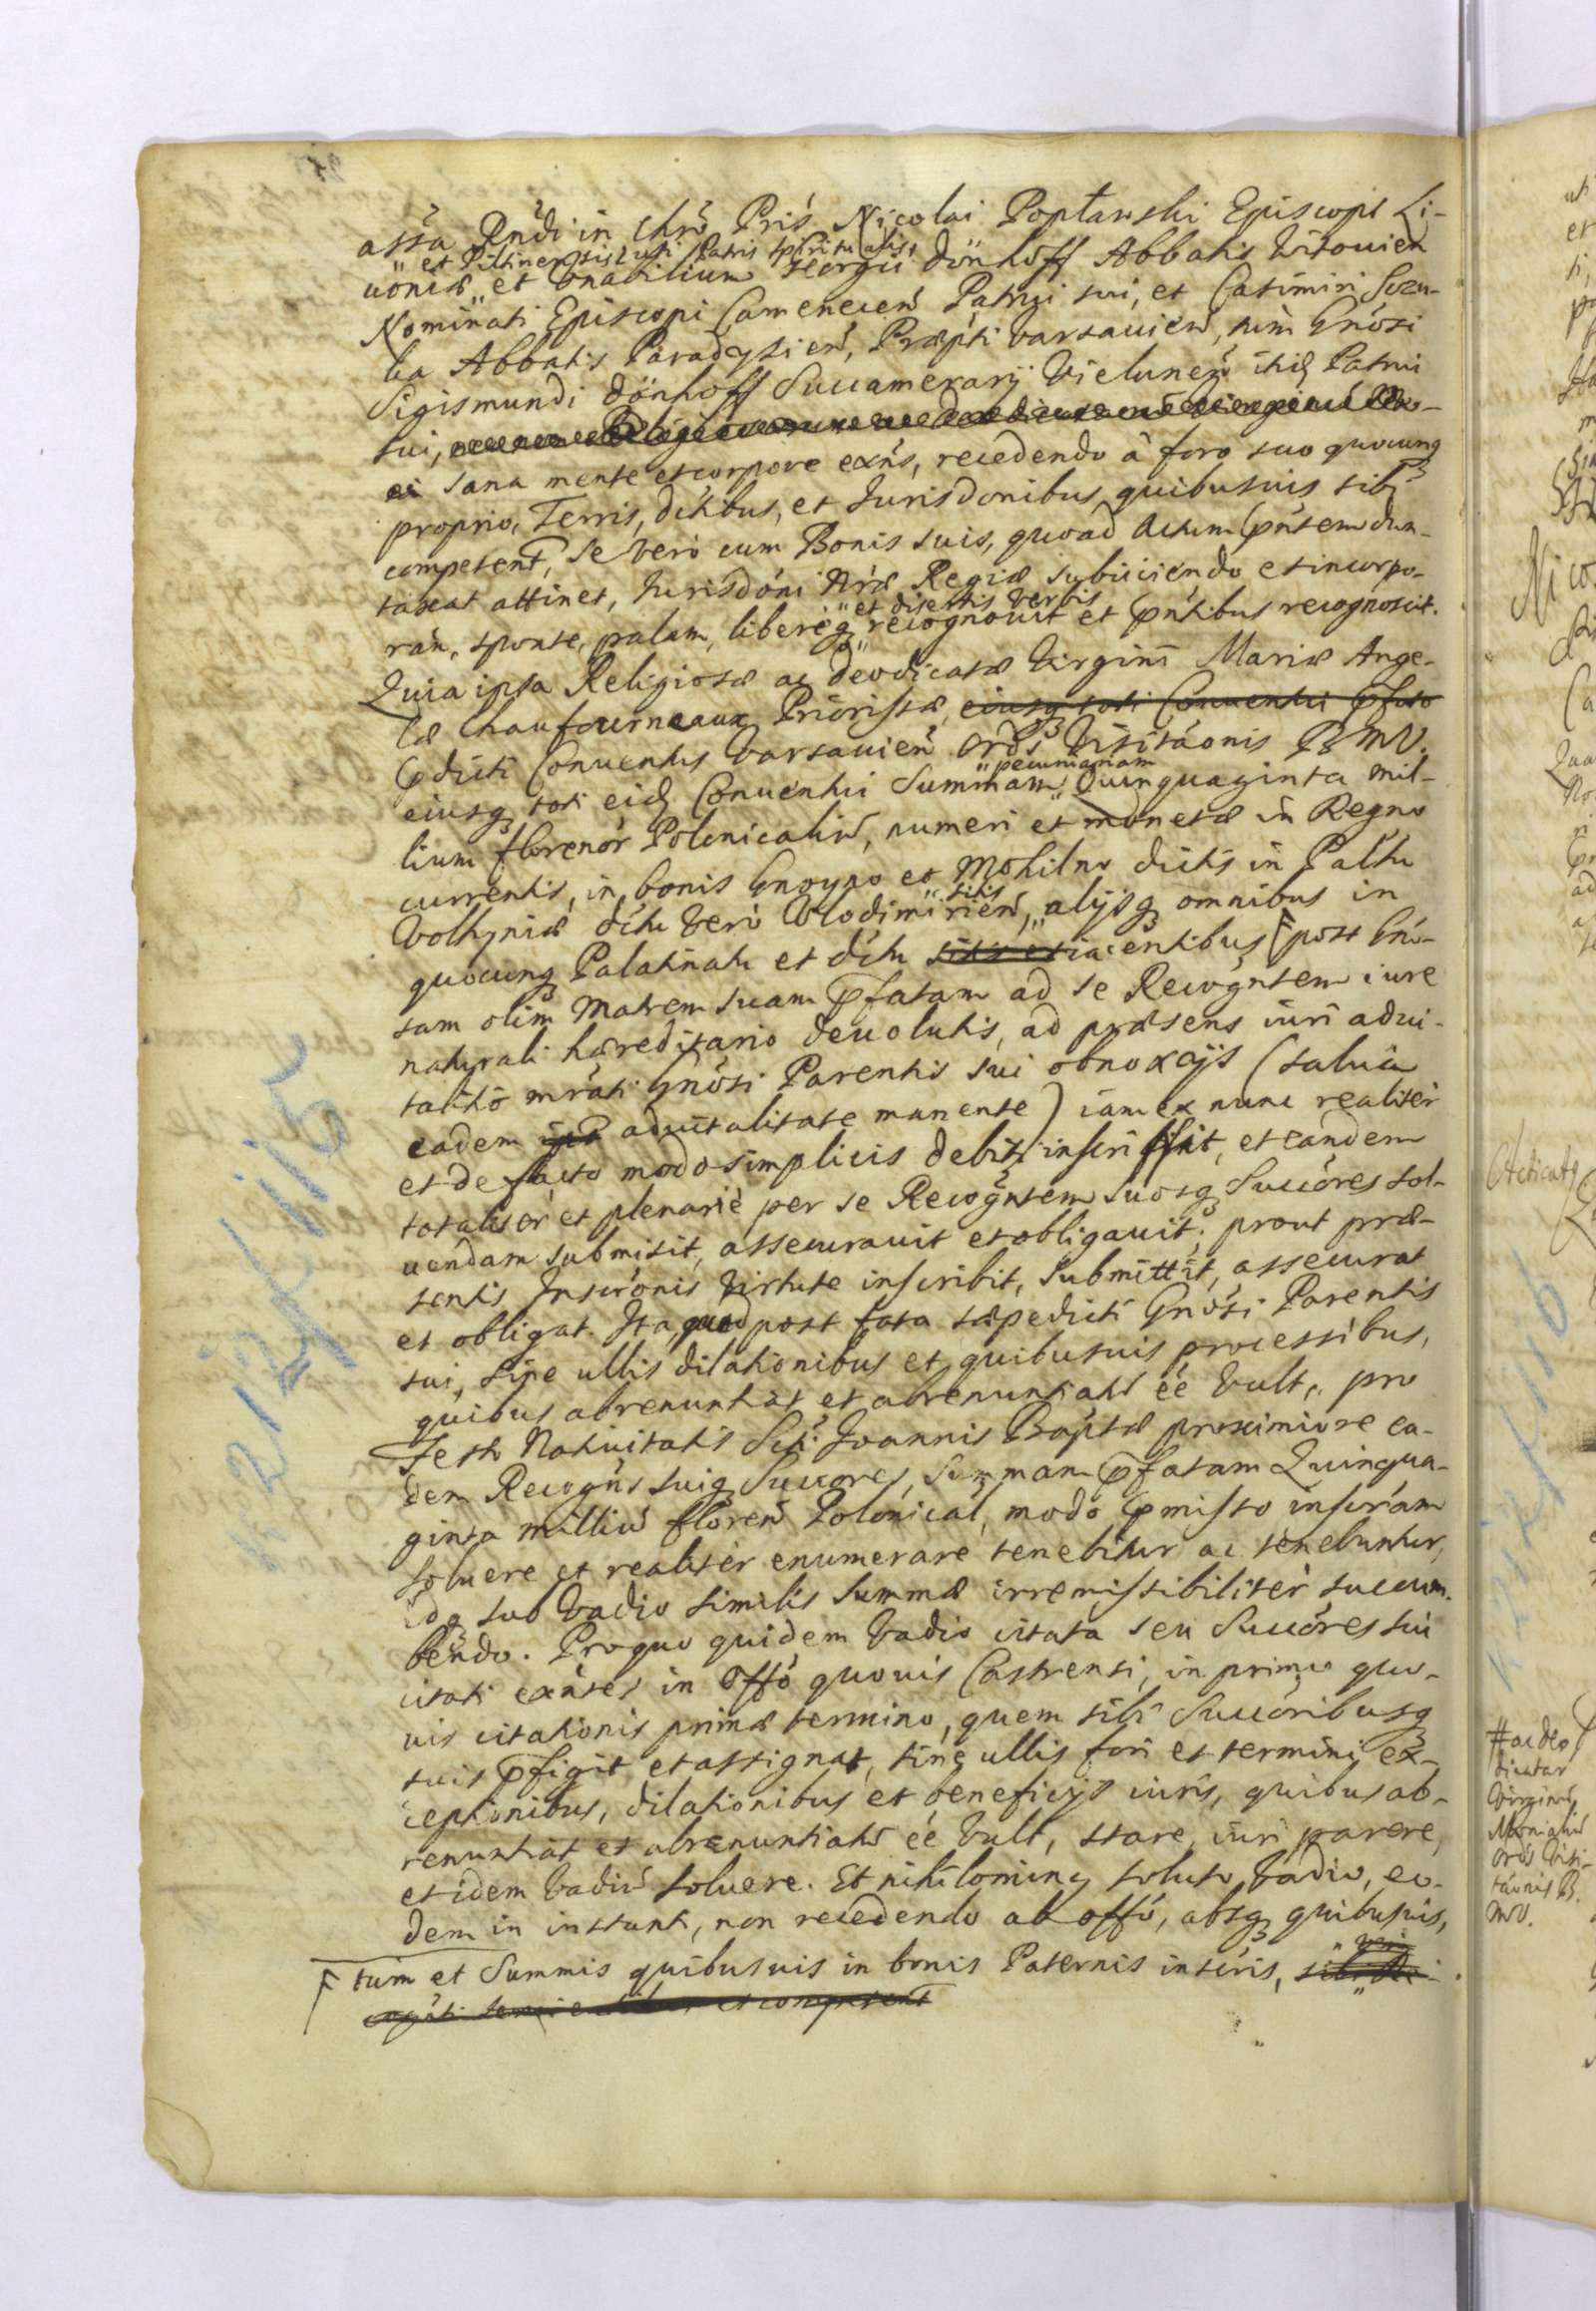 assa Rndi in Chro Pris Nicolai Popławski Episcopi Li-
" et Piltinensis sui Patris spiritualis,
uoniæ " et Venerabilium Georgii Dönhoff Abbatis Witouien
Nominati Episcopi Camenecen Patrui sui, et Casimiri Szczu-
ka Abbatis Paradysien, Præpti Varsauien, tum Gnosi
Sigismundi Dönhoff Succamerarÿ Vielunen itid Patrui
sui,
sana mente et corpore exñs, recedendo à foro suo quocunq
proprio, Terris, dctibus, et Jurisdonibus quibusuis sibi
competent, se vero cum Bonis suis, quoad Actum pntem dun-
taxat attinet, Jurisdoni Aræ Regiæ subiiciendo et incorpo-
" et disertis verbis
ran, sponte, palam, libereq " recognouit et pntibus recognoscit.
Quia ipsa Religiosæ ac Deodicatæ Virgini Mariæ Ange-
læ Chaufourneaux Priorissæ, eiusq toti Conuentui pfato
pdicti Conuentus Varsauien Ords Visitaonis BMV.
" pecuniariam
eiusq toti eid Conuentui Summam " Quinquaginta mil-
lium florenor Polonicaliu, numeri et monetæ in Regno
currentis, in bonis Gnoyno et Mohilno dictis in Paltu
" sitis
Volhyniæ dctu vero Vlodimirien, " alÿsq omnibus in
quocunq Palatinatu et dctu sitis et iacentibus F post Gno-
sam olim Matrem suam pfatam ad se Recogntem iure
naturali hæreditario deuolutis, ad præsens iuri adui-
talito mrati Gnosi Parentis sui obnoxÿs (salua
eadem aduitalitate manente) iam ex nunc realiter
et de facto modo simplicis debiti inscripsit, et eandem
totaliter et plenariè per se Recogntem suosq Succores sol-
uendam submisit, assecurauit et obligauit, prout præ-
sentis Inscronis virtute inscribit, submittit, assecurat
et obligat. Ita quod post fata sæpedicti Gnosi Parentis
sui, sine ullis dilationibus et quibusuis processibus,
quibus abrenuntiat et abrenuntiatu ée vult, pro
Festo Natiuitatis Scti Joannis Baptæ proximiore ea-
dem Recogns suiq Succores, Summam pfatam Quinqua-
ginta milliu floren Polonical, modo pmisso inscriam
soluere et realiter enumerare tenebitur ac tenebuntur,
idq sub vadio similis summæ irremissibiliter succum-
bendo. Pro quo quidem vadio citata seu Succores sui
citati exntes in Offo quouis Castrensi, in primo quo-
uis citationis primæ termino, quem sibi Succoribusq
suis pfigit et assignat, sine ullis fori et termini ex-
ceptionibus, dilationibus et beneficÿs iuris, quibus ab-
renuntiat et abrenuntiatu ée vult, stare, iuri parere,
et idem vadiu soluere. Et nihilominus soluto vadio, eo-
dem in instanti, non recedendo ab offo, absq quibusuis,
F tum et Summis quibusuis in bonis Paternis inscris,
et competent
Nico
Acticat
# ac deo
dicatar
Virginu
Monialiu
Ords Visi-
taonis B.
MV.